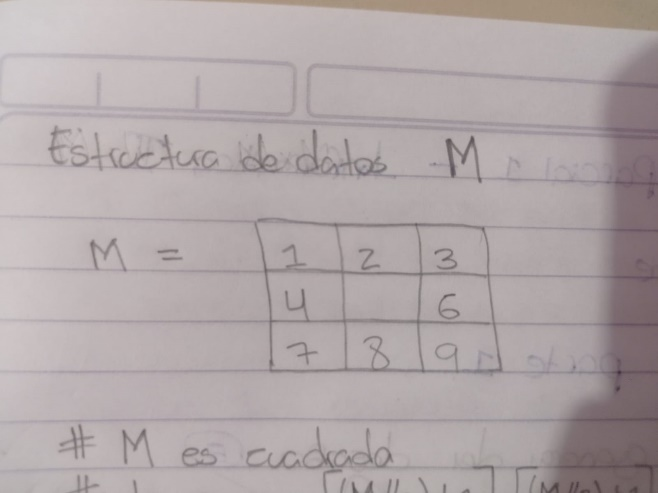 Estructura de datos M
M =
1 2 3
4 6
7 8 9
# M es cuadrada